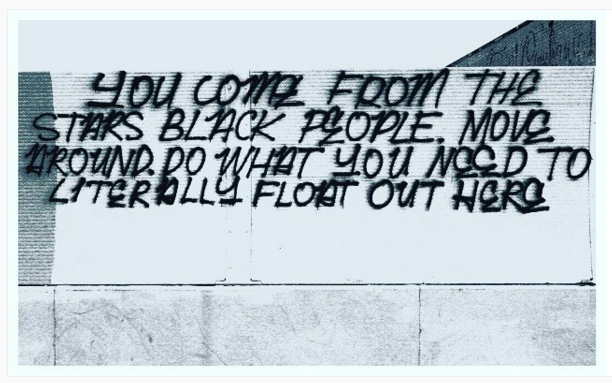 YOU COME FROM THE
STARS BLACK PEOPLE. MOVE
AROUND. DO WHAT YOU NEED TO
LITERALLY FLOAT OUT HERE